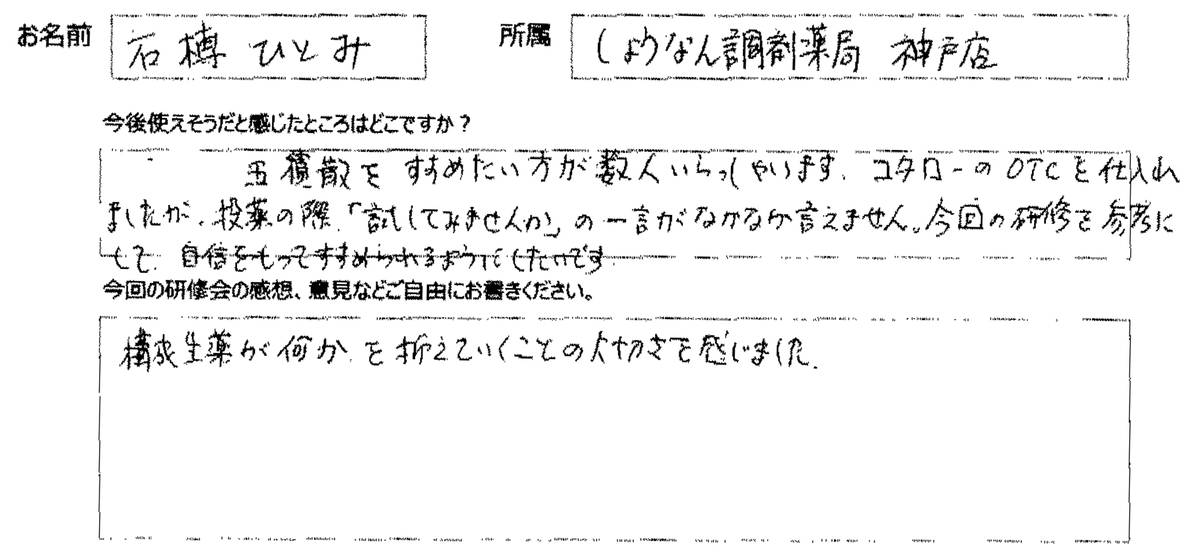 お名前 石榑 ひとみ 所属 しょうなん調剤薬局 神戸店
今後使えそうだと感じたところはどこですか？
五積散を すすめたい方が数人いらっしゃいます. コタローのOTCを仕入れ
ましたが. 投薬の際.「試してみませんか」の一言がなかなか言えません。今回の研修を参考に
して. 自信をもってすすめられるようにしたいです
今回の研修会の感想、意見などご自由にお書きください。
構成生薬が何か.を抑えていくことの大切さを感じました.